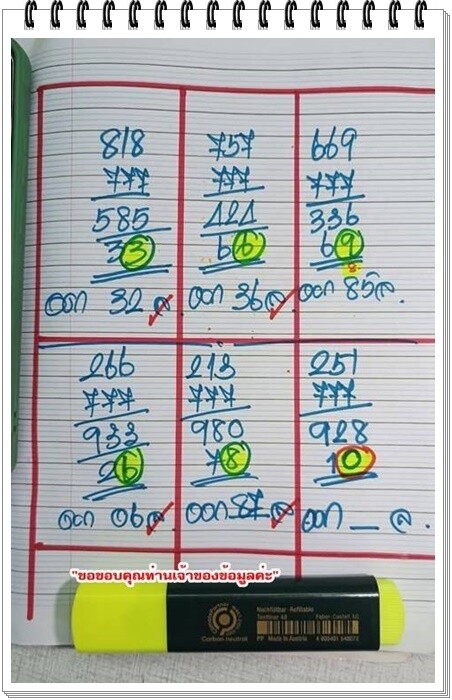 818
777
585
33
ออก 32 ล.
757
777
424
66
ออก 36 ล.
669
777
336
69
8
ออก 85 ล.
266
777
933
26
ออก 06 ล.
213
777
980
78
ออก 87 ล.
251
777
928
10
ออก _ ล.
"ขอขอบคุณท่านเจ้าของข้อมูลค่ะ"
Carbon neutral
Nachfüllbar · Refillable
Textliner 48 Faber-Castell AG
PP Made in Austria